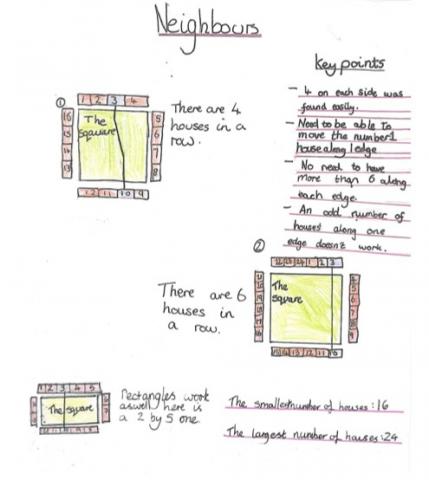 Neighbours
Key points
- 4 on each side was
found easily.
- Need to be able to
move the number 1
house along 1 edge
- No need to have
more than 6 along
each edge.
- An odd number of
houses along one
edge doesn't work.
①
1 2 3 4
16 15 14 13
The
sqaware
5 6 7 8
12 11 10 9
There are 4
houses in a
row.
②
1 2 3
The
square
4 5 6 7 8 9
15 14 13 12 11 10
There are 6
houses in
a row.
1 2 3 4 5
The square
Rectangles work
aswell here is
a 2 by 5 one
The smallest number of houses: 16
The largest number of houses: 24